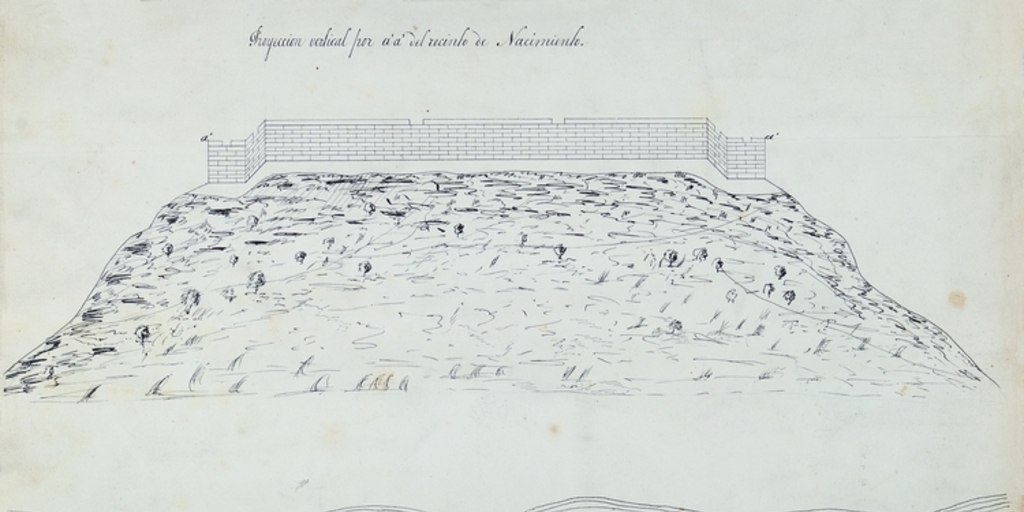 Proyeccion vertical por a'a' del recinto de Nacimiento.
a' a'